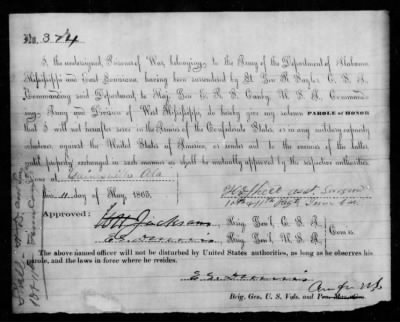 No. 324
I, the undersigned, Prisoner of War, belonging to the Army of the Department of Alabama,
Mississippi and East Louisiana, having been surrendered by Lt. Gen. R. Taylor, C. S. A.,
Commanding said Department, to Maj. Gen. E. R. S. Canby, U. S. A., Command-
ing Army and Division of West Mississippi, do hereby give my solemn PAROLE OF HONOR
that I will not hereafter serve in the Armies of the Confederate States, or in any military capacity
whatever, against the United States of America, or render aid to the enemies of the latter,
until properly exchanged in such manner as shall be mutually approved by the respective authorities
Done at Gainesville Ala
this 11 day of May, 1865.
Asst Surgeon
Regt Tenn Cav
Approved:
W H Jackson Brig. Gen'l, C. S. A.
E. S. Dennis Brig. Gen'l, U. S. A.
Com'rs
The above named officer will not be disturbed by United States authorities, as long as he observes his
parole, and the laws in force where he resides.
E. S. Dennis
Brig. Gen. U. S. Vols. and